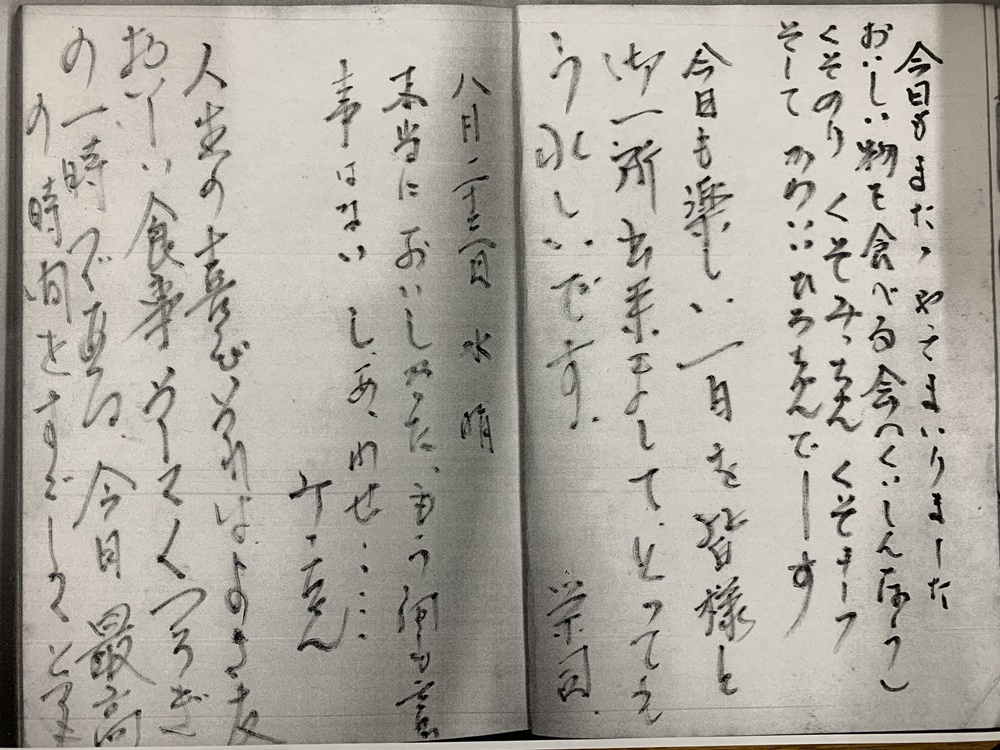 今日もまたまたやってまいりました
おいしい物を食べる会(くいしん坊!)
くそのり くそみっちゃん くそ
そして かわいいひろちゃんでーす
今日も楽しい一日を皆様と
御一所出来まして、とってえ
う永しいです。
栄司
八月二十三日 水 晴
本当においしかった、もう何も言
事はない し、あ、わせ・・・・
ちゃん
人生の喜びそれはよき友
おいしい食事そしてくつろぎ
の一時である 今日 最高
の時間をすごして